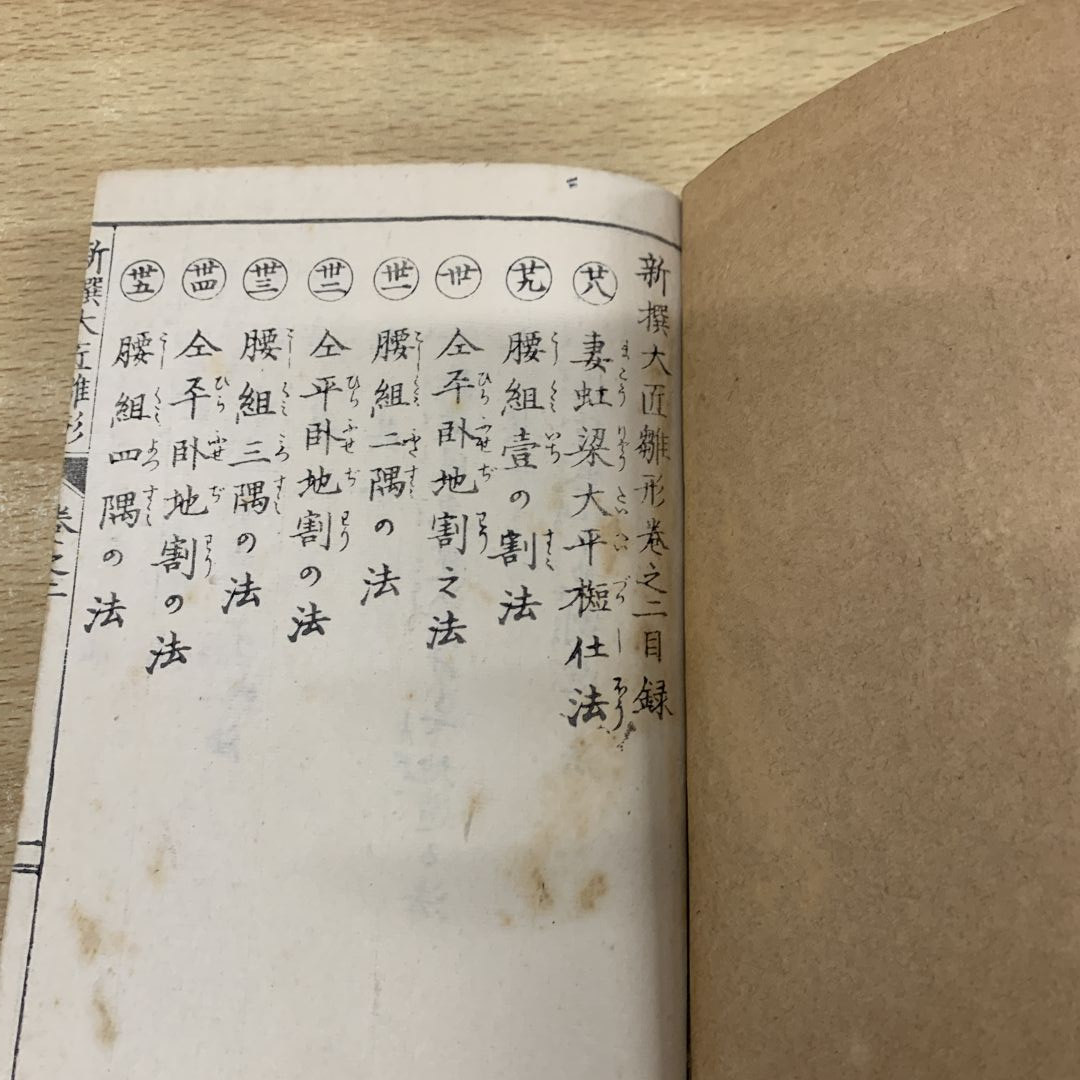 新撰大匠雛形巻之二目録
廿八 妻虹梁大平櫨仕法
廿九 腰組壹の割法
卅 仝平卧地割之法
卅一 腰組二隅の法
卅二 仝平卧地割の法
卅三 腰組三隅の法
卅四 仝平卧地割の法
卅五 腰組四隅の法
新撰大匠雛形 巻之二